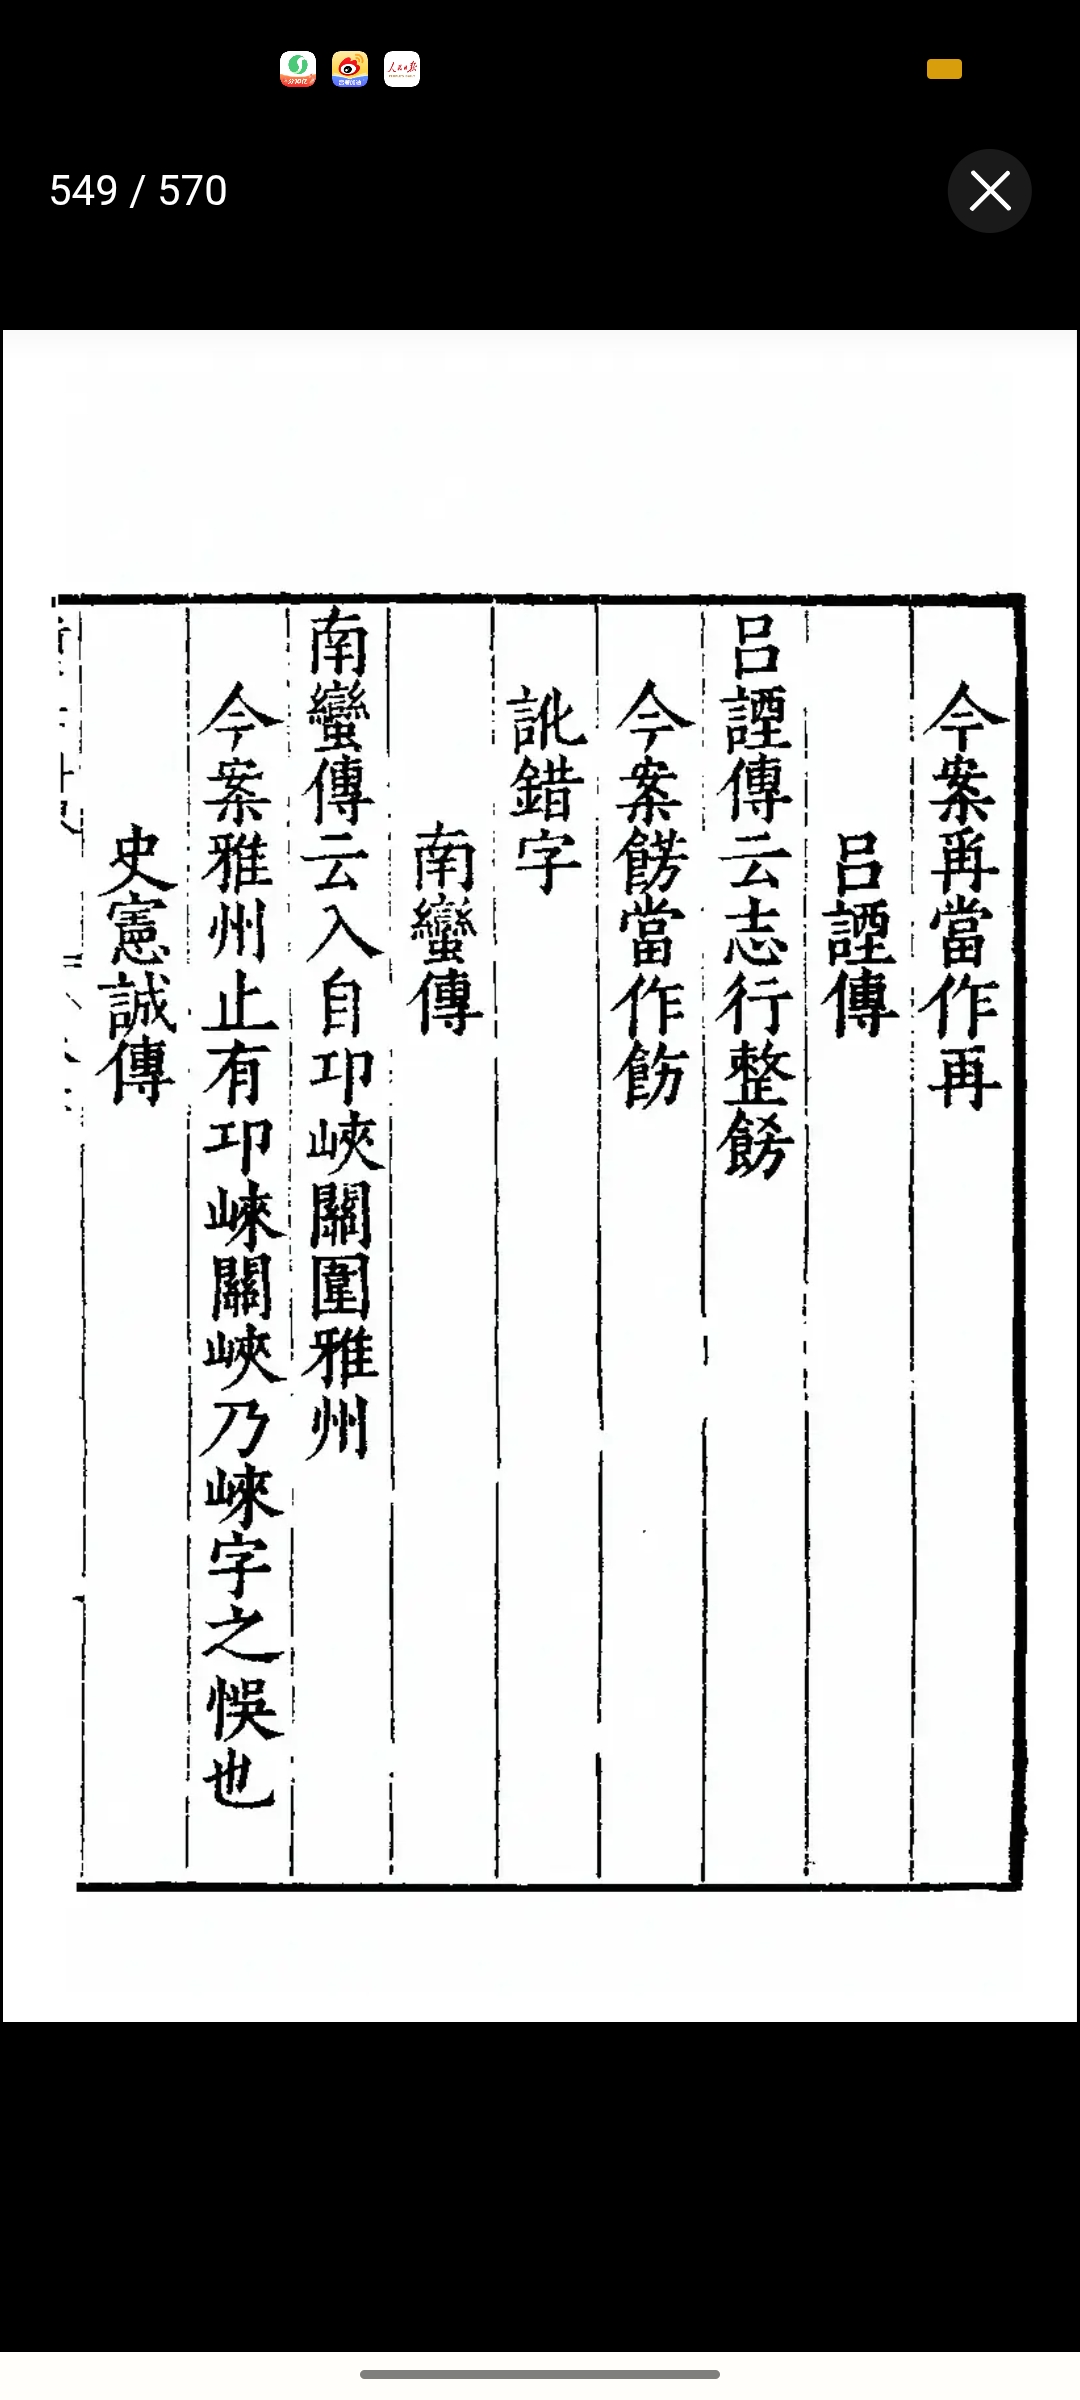 549 / 570
今案爯當作再
呂諲傳
呂諲傳云志行整餝
今案餝當作飭
訛錯字
南蠻傳
南蠻傳云入自邛峽關圍雅州
今案雅州止有邛崍關峽乃崍字之悞也
史憲誠傳